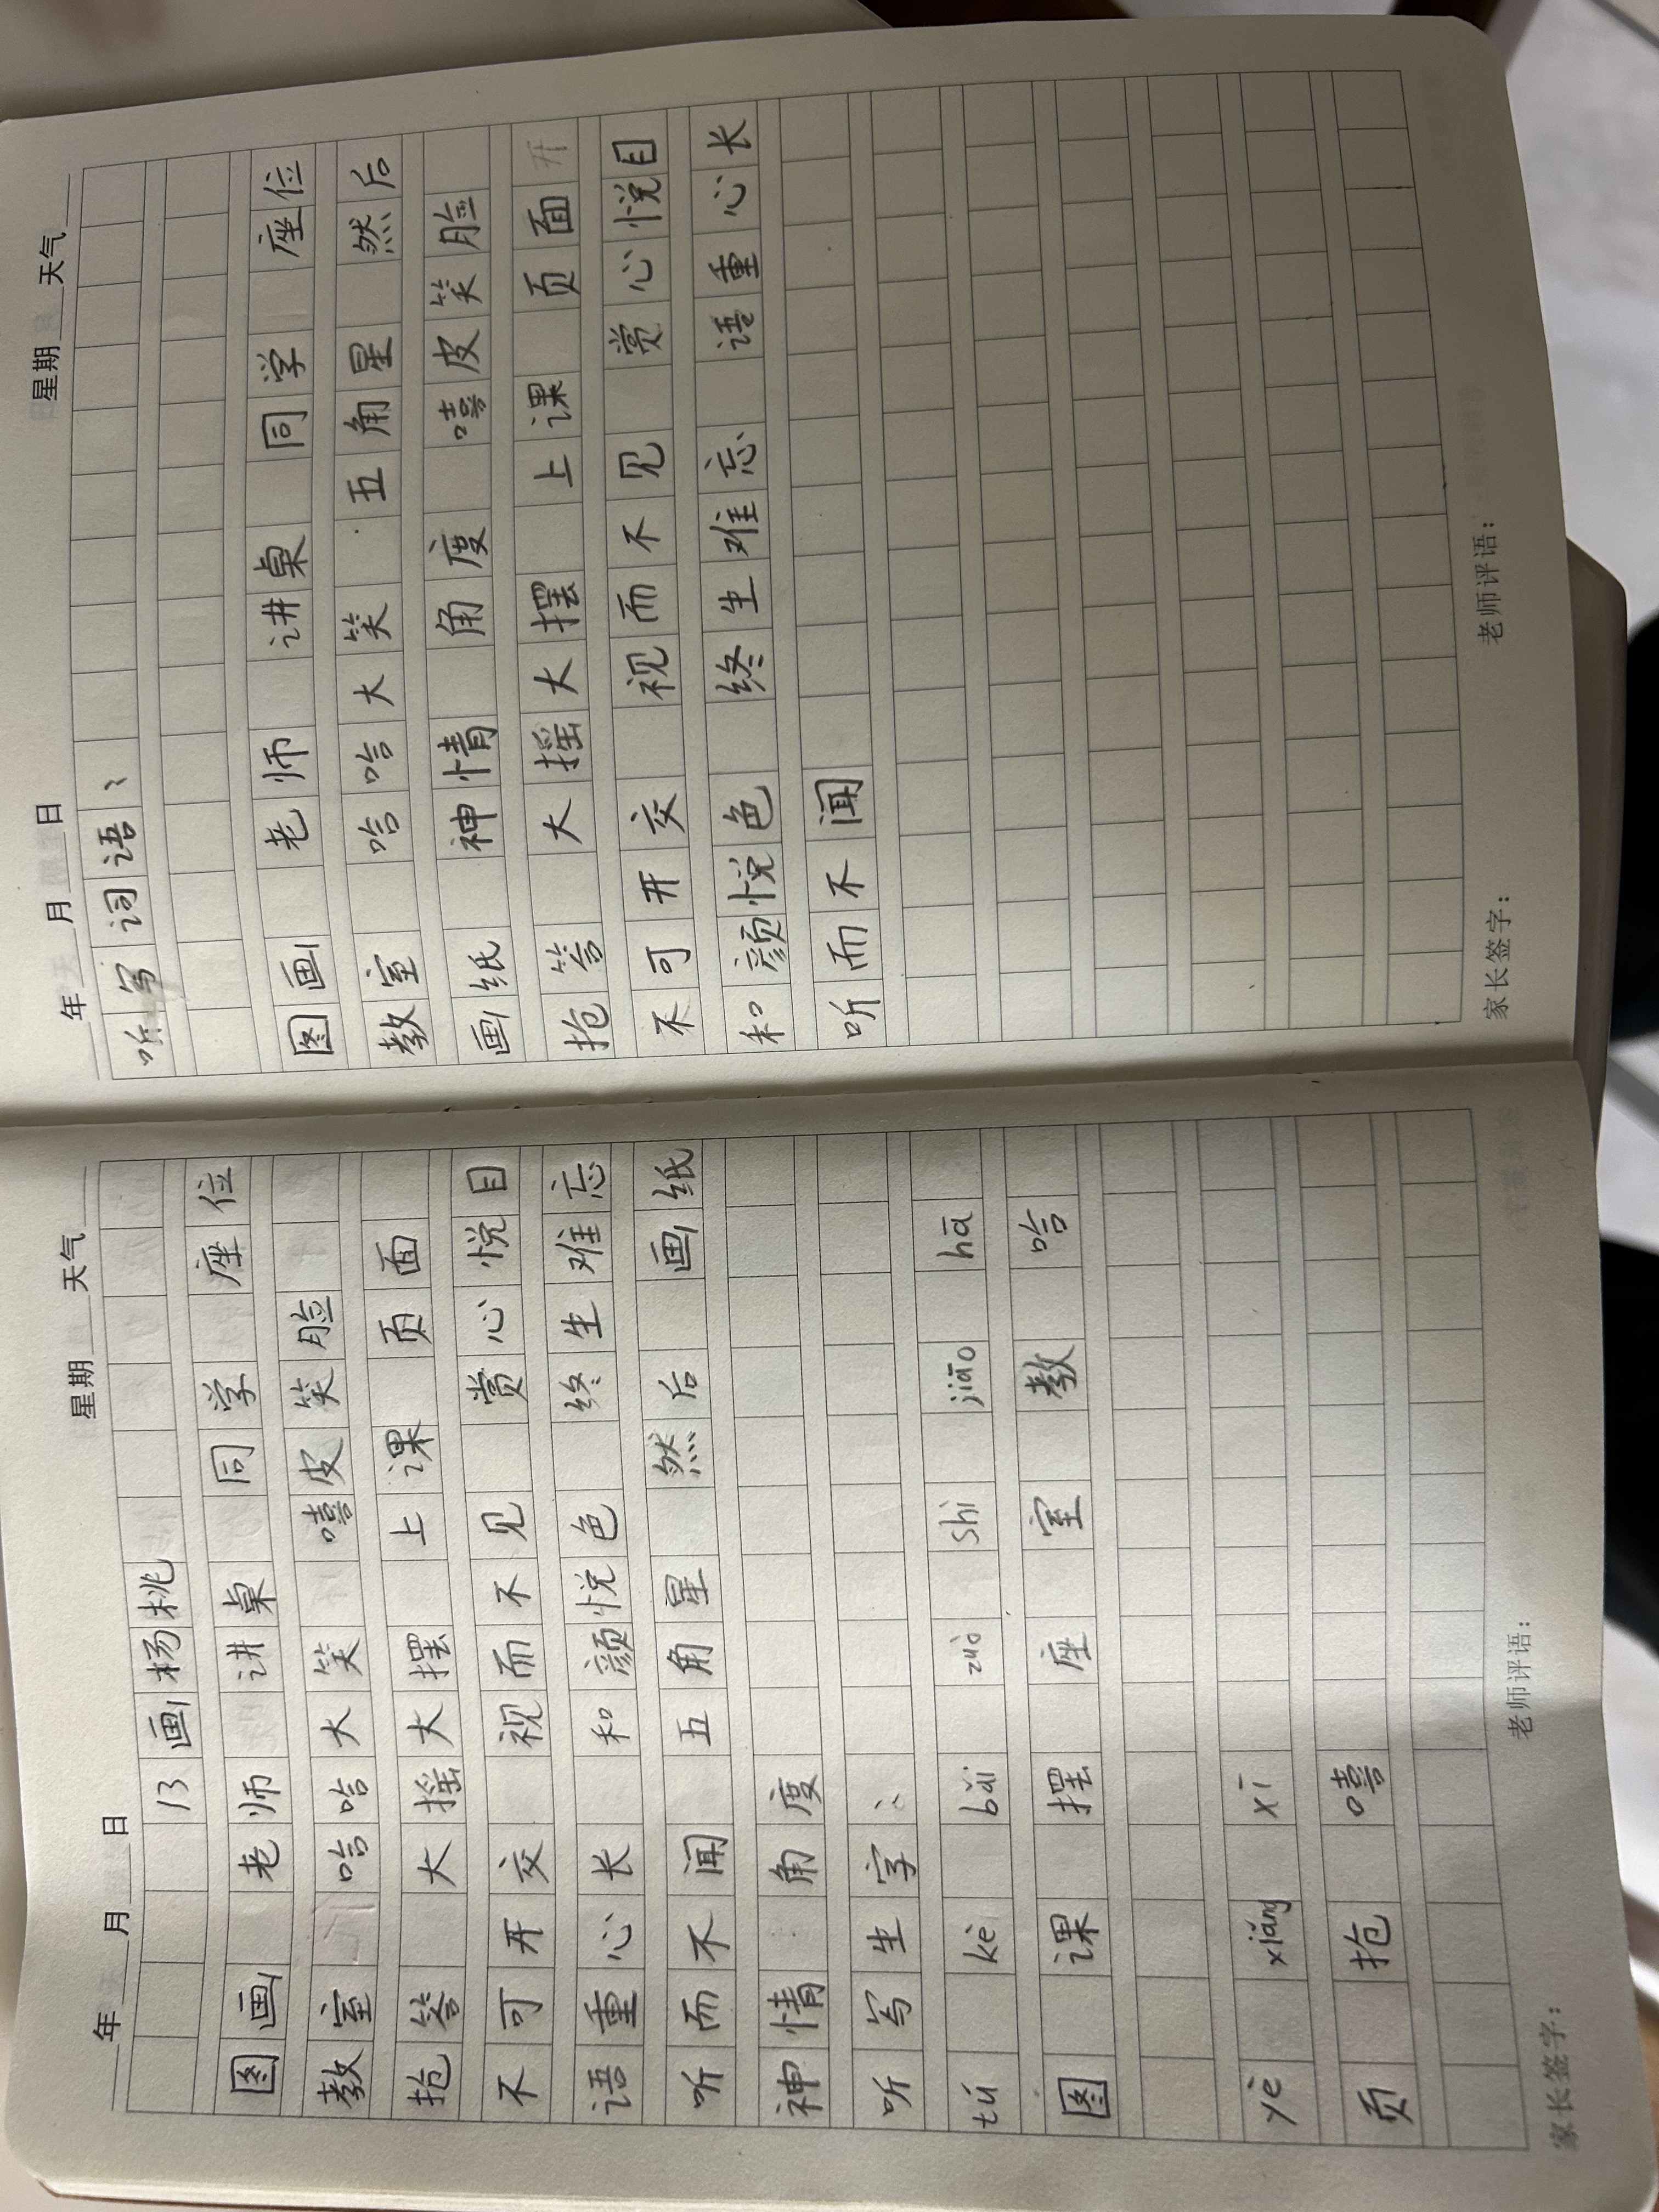 年 月 日 星期 天气
13 画杨桃
图画 老师 讲桌 同学 座位
教室 哈哈大笑 嘻皮笑脸
抢答 大摇大摆 上课 页面
不可开交 视而不见 赏心悦目
语重心长 和颜悦色 终生难忘
听而不闻 五角星 然后 画纸
神情 角度
听写生字:
tú kè bǎi zuò shì jiāo hā
图 课 摆 座 室 教 哈
yè xiǎng xī
页 抢 嘻
家长签字: 老师评语:
年 月 日 星期 天气
听写词语、
图画 老师 讲桌 同学 座位
教室 哈哈大笑 五角星 然后
画纸 神情 角度 嘻皮笑脸
抢答 大摇大摆 上课 页面 开
不可开交 视而不见 赏心悦目
和颜悦色 终生难忘 语重心长
听而不闻
家长签字: 老师评语: